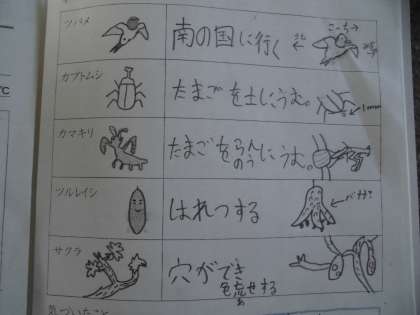 ツバメ
南の国に行く
こっち→
カブトムシ
たまごを土にうむ。
1mm
カマキリ
たまごをらんのうにうむ。
ツルレイシ
はれつする
サクラ
穴ができ
色荒せする
気づいたこと
℃